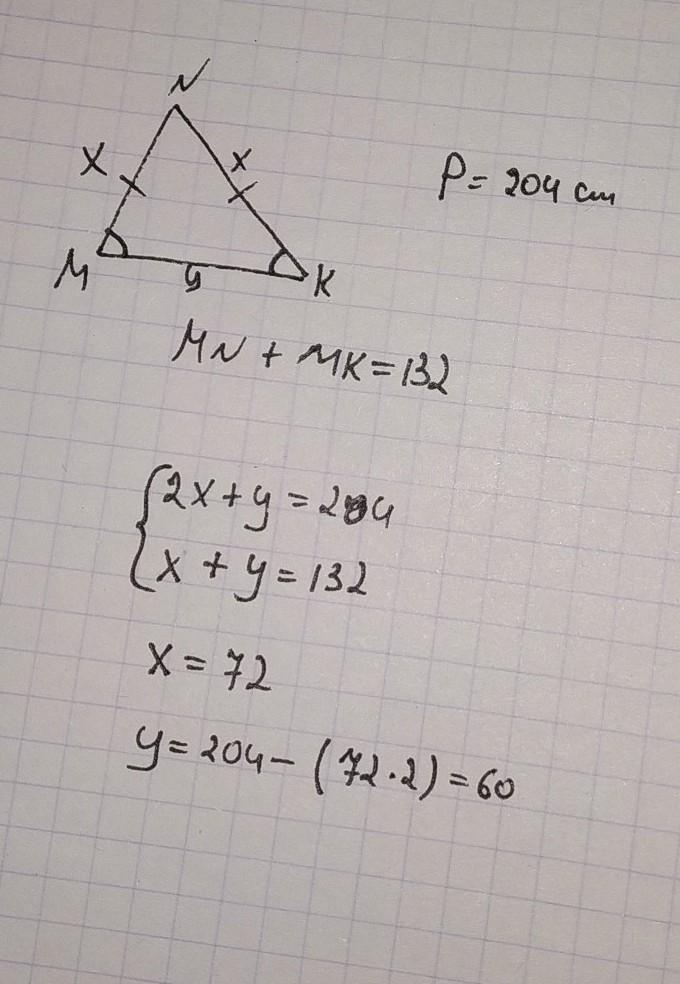 N
X x
P = 204 cm
M y K
MN + MK = 132
2x + y = 204
x + y = 132
x = 72
y = 204 - (72 · 2) = 60